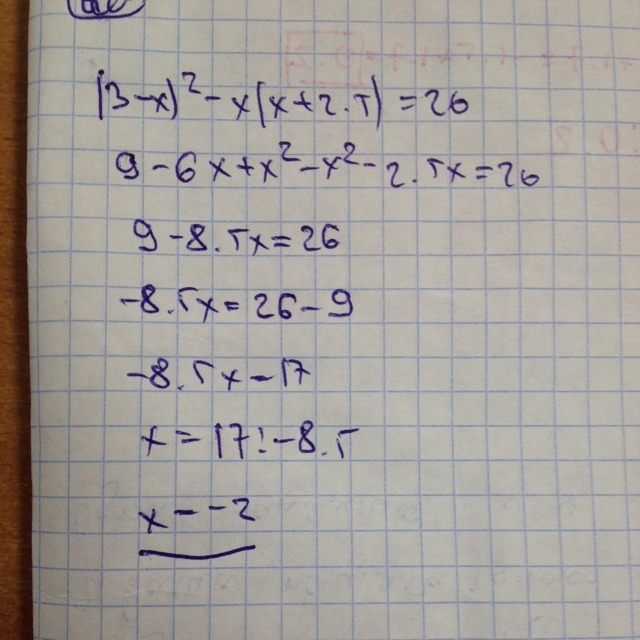 (3-x)² - x(x+2.5) = 26
9 - 6x + x² - x² - 2.5x = 26
9 - 8.5x = 26
-8.5x = 26 - 9
-8.5x = 17
x = 17 : -8.5
x = -2